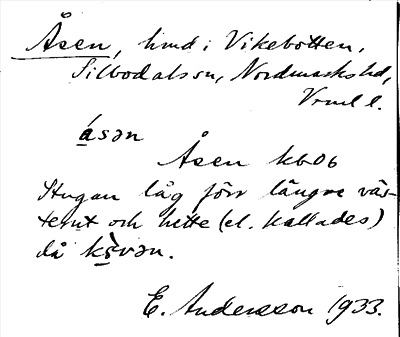 Åsen, hmd i Vikebotten,
Silbodals sn, Nordmarks hd,
Vrml l.
ásən
Åsen kbob
Stugan låg förr längre väs-
terut och hette (el. kallades)
då ks̀vən.
E. Andersson 1933.